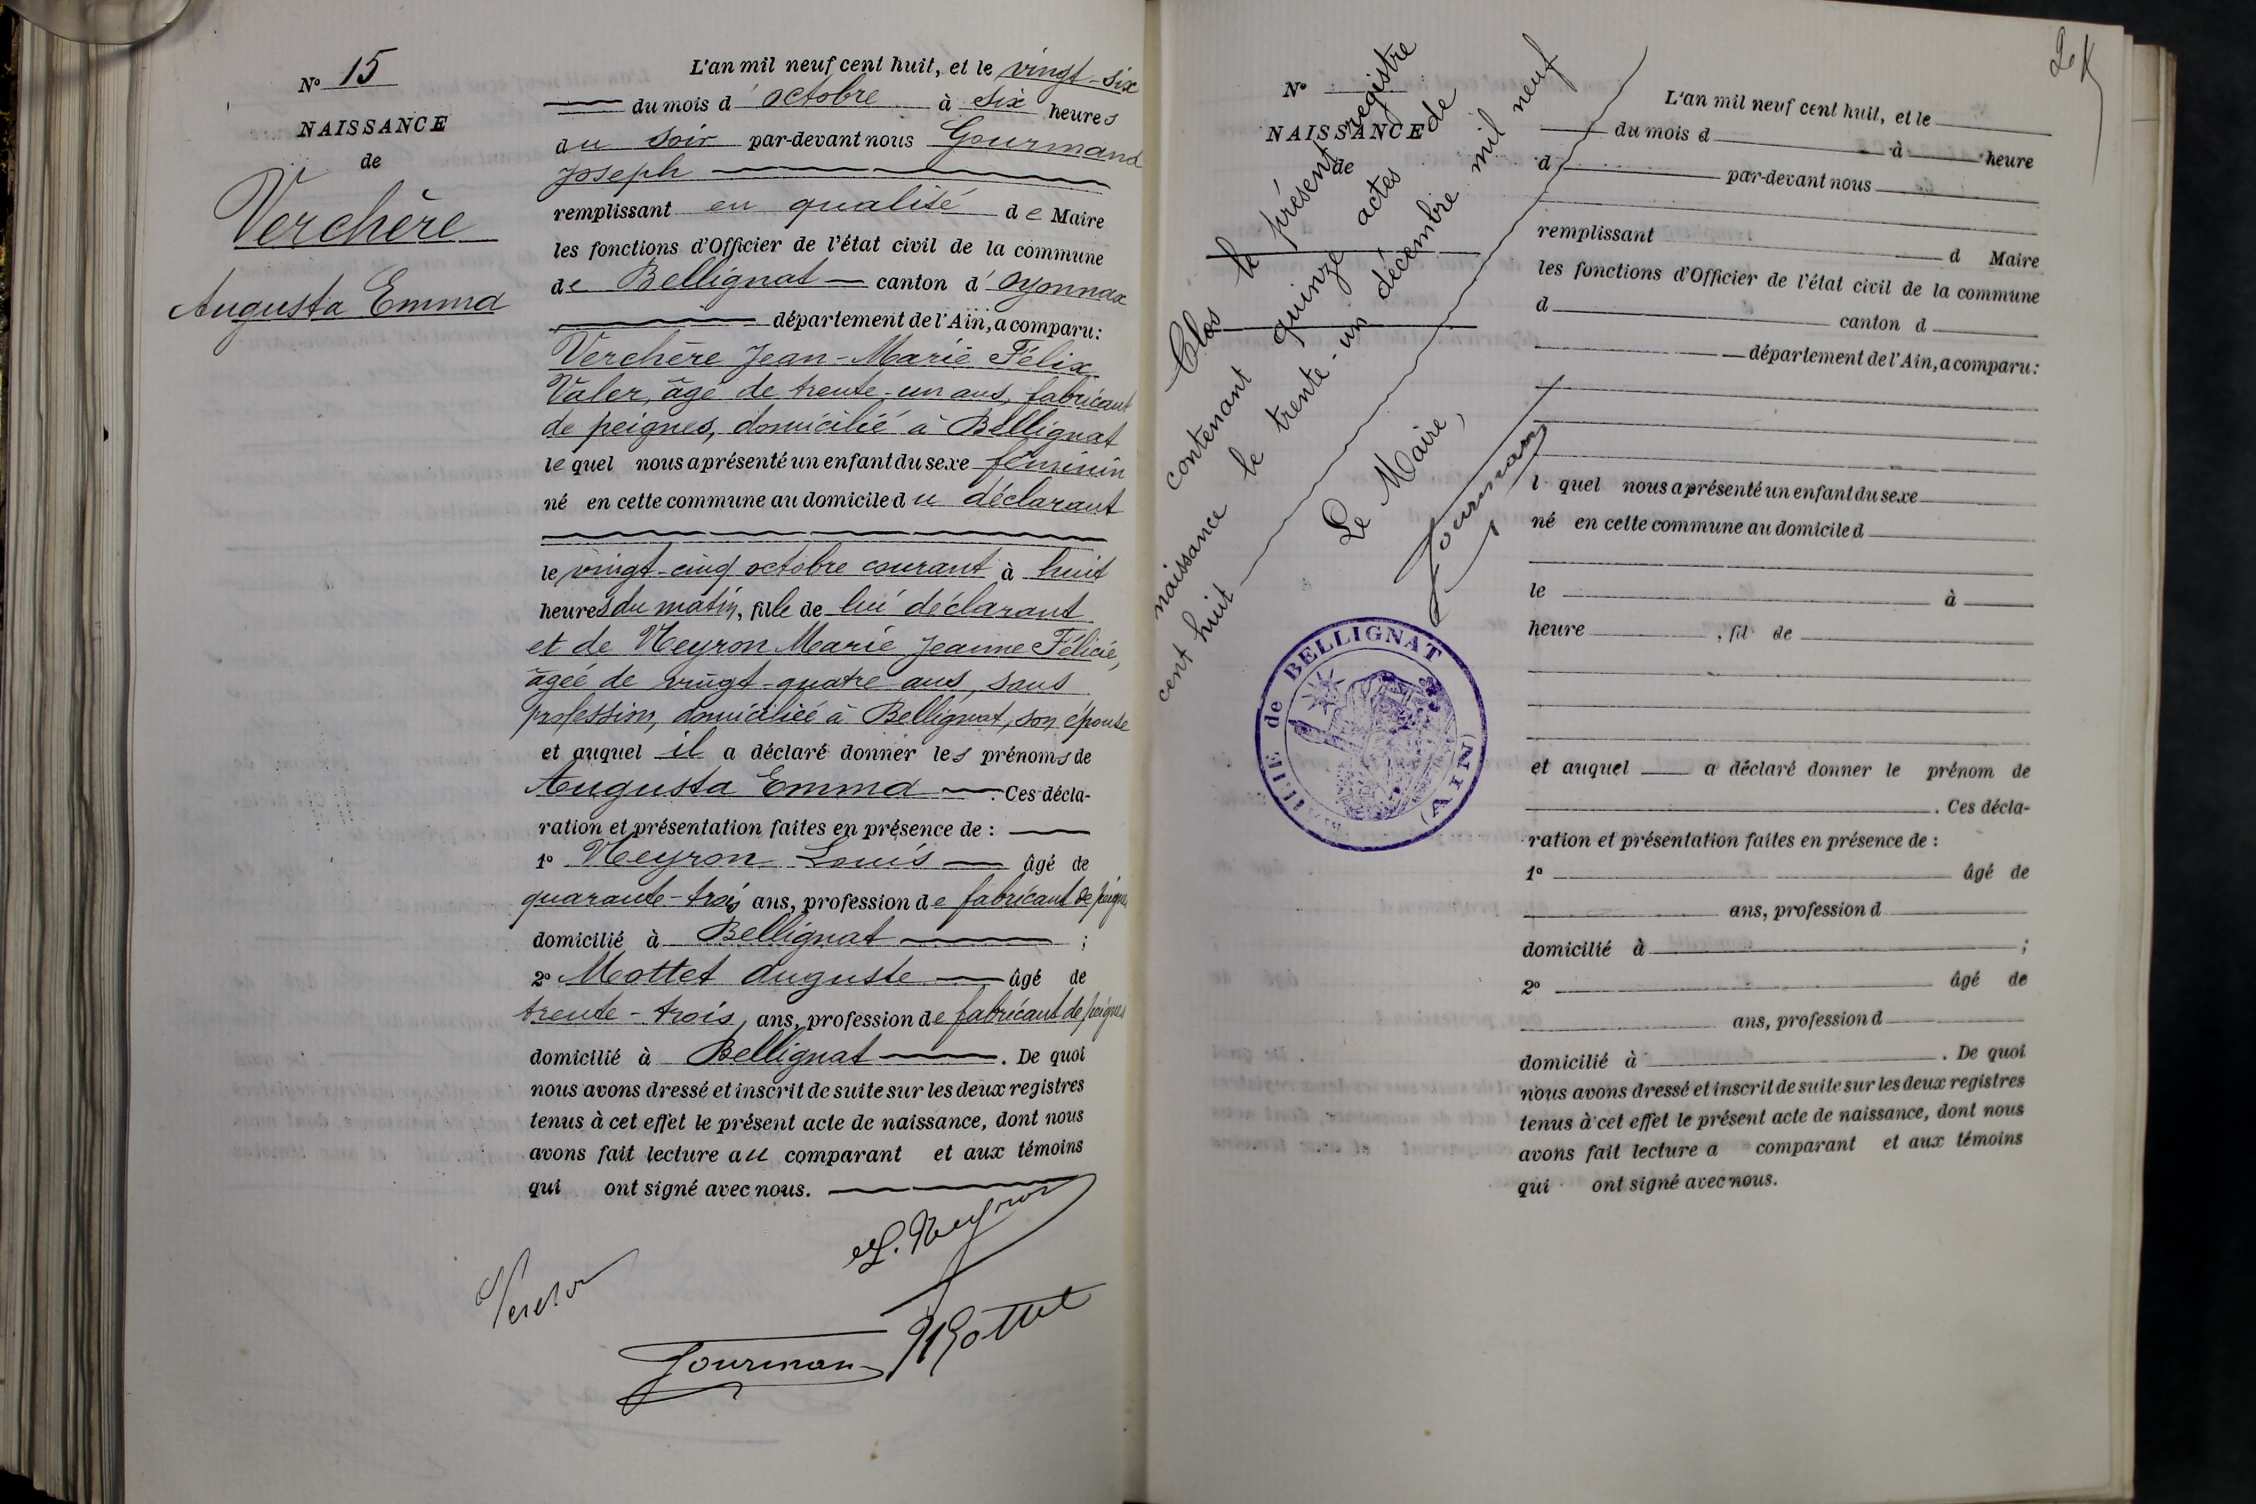 N° 15
NAISSANCE
de
Verchère
Augusta Emma
L'an mil neuf cent huit, et le vingt-six
du mois d'octobre à six heures
du soir par-devant nous Gourmand
Joseph
remplissant en qualité de Maire
les fonctions d'Officier de l'état civil de la commune
de Bellignat canton d'Oyonnax
département de l'Ain, a comparu:
Verchère Jean-Marie Félix
Valer, âgé de trente-un ans, fabricant
de peignes, domicilié à Bellignat
lequel nous a présenté un enfant du sexe féminin
né en cette commune au domicile du déclarant
le vingt-cinq octobre courant à huit
heures du matin, fille de lui déclarant
et de Neyron Marie Jeanne Félicie,
âgée de vingt-quatre ans, sans
profession, domiciliée à Bellignat, son épouse
et auquel il a déclaré donner les prénoms de
Augusta Emma. Ces décla-
ration et présentation faites en présence de :
1° Neyron Louis âgé de
quarante-trois ans, profession de fabricant de peignes
domicilié à Bellignat ;
2° Mottet Auguste âgé de
trente-trois, ans, profession de fabricant de peignes
domicilié à Bellignat. De quoi
nous avons dressé et inscrit de suite sur les deux registres
tenus à cet effet le présent acte de naissance, dont nous
avons fait lecture au comparant et aux témoins
qui ont signé avec nous.
L. Neyron
Gourman Mottet
Clos le présent registre
contenant quinze actes de
naissance le trente-un décembre mil neuf
cent huit
Le Maire,
Gourman
MAIRIE de BELLIGNAT
(AIN)
N°
NAISSANCE
de
L'an mil neuf cent huit, et le
du mois d à heure
d par-devant nous
remplissant d Maire
les fonctions d'Officier de l'état civil de la commune
d canton d
département de l'Ain, a comparu:
l quel nous a présenté un enfant du sexe
né en cette commune au domicile d
le à
heure , fil de
et auquel a déclaré donner le prénom de
. Ces décla-
ration et présentation faites en présence de :
1° âgé de
ans, profession d
domicilié à ;
2° âgé de
ans, profession d
domicilié à . De quoi
nous avons dressé et inscrit de suite sur les deux registres
tenus à cet effet le présent acte de naissance, dont nous
avons fait lecture a comparant et aux témoins
qui ont signé avec nous.